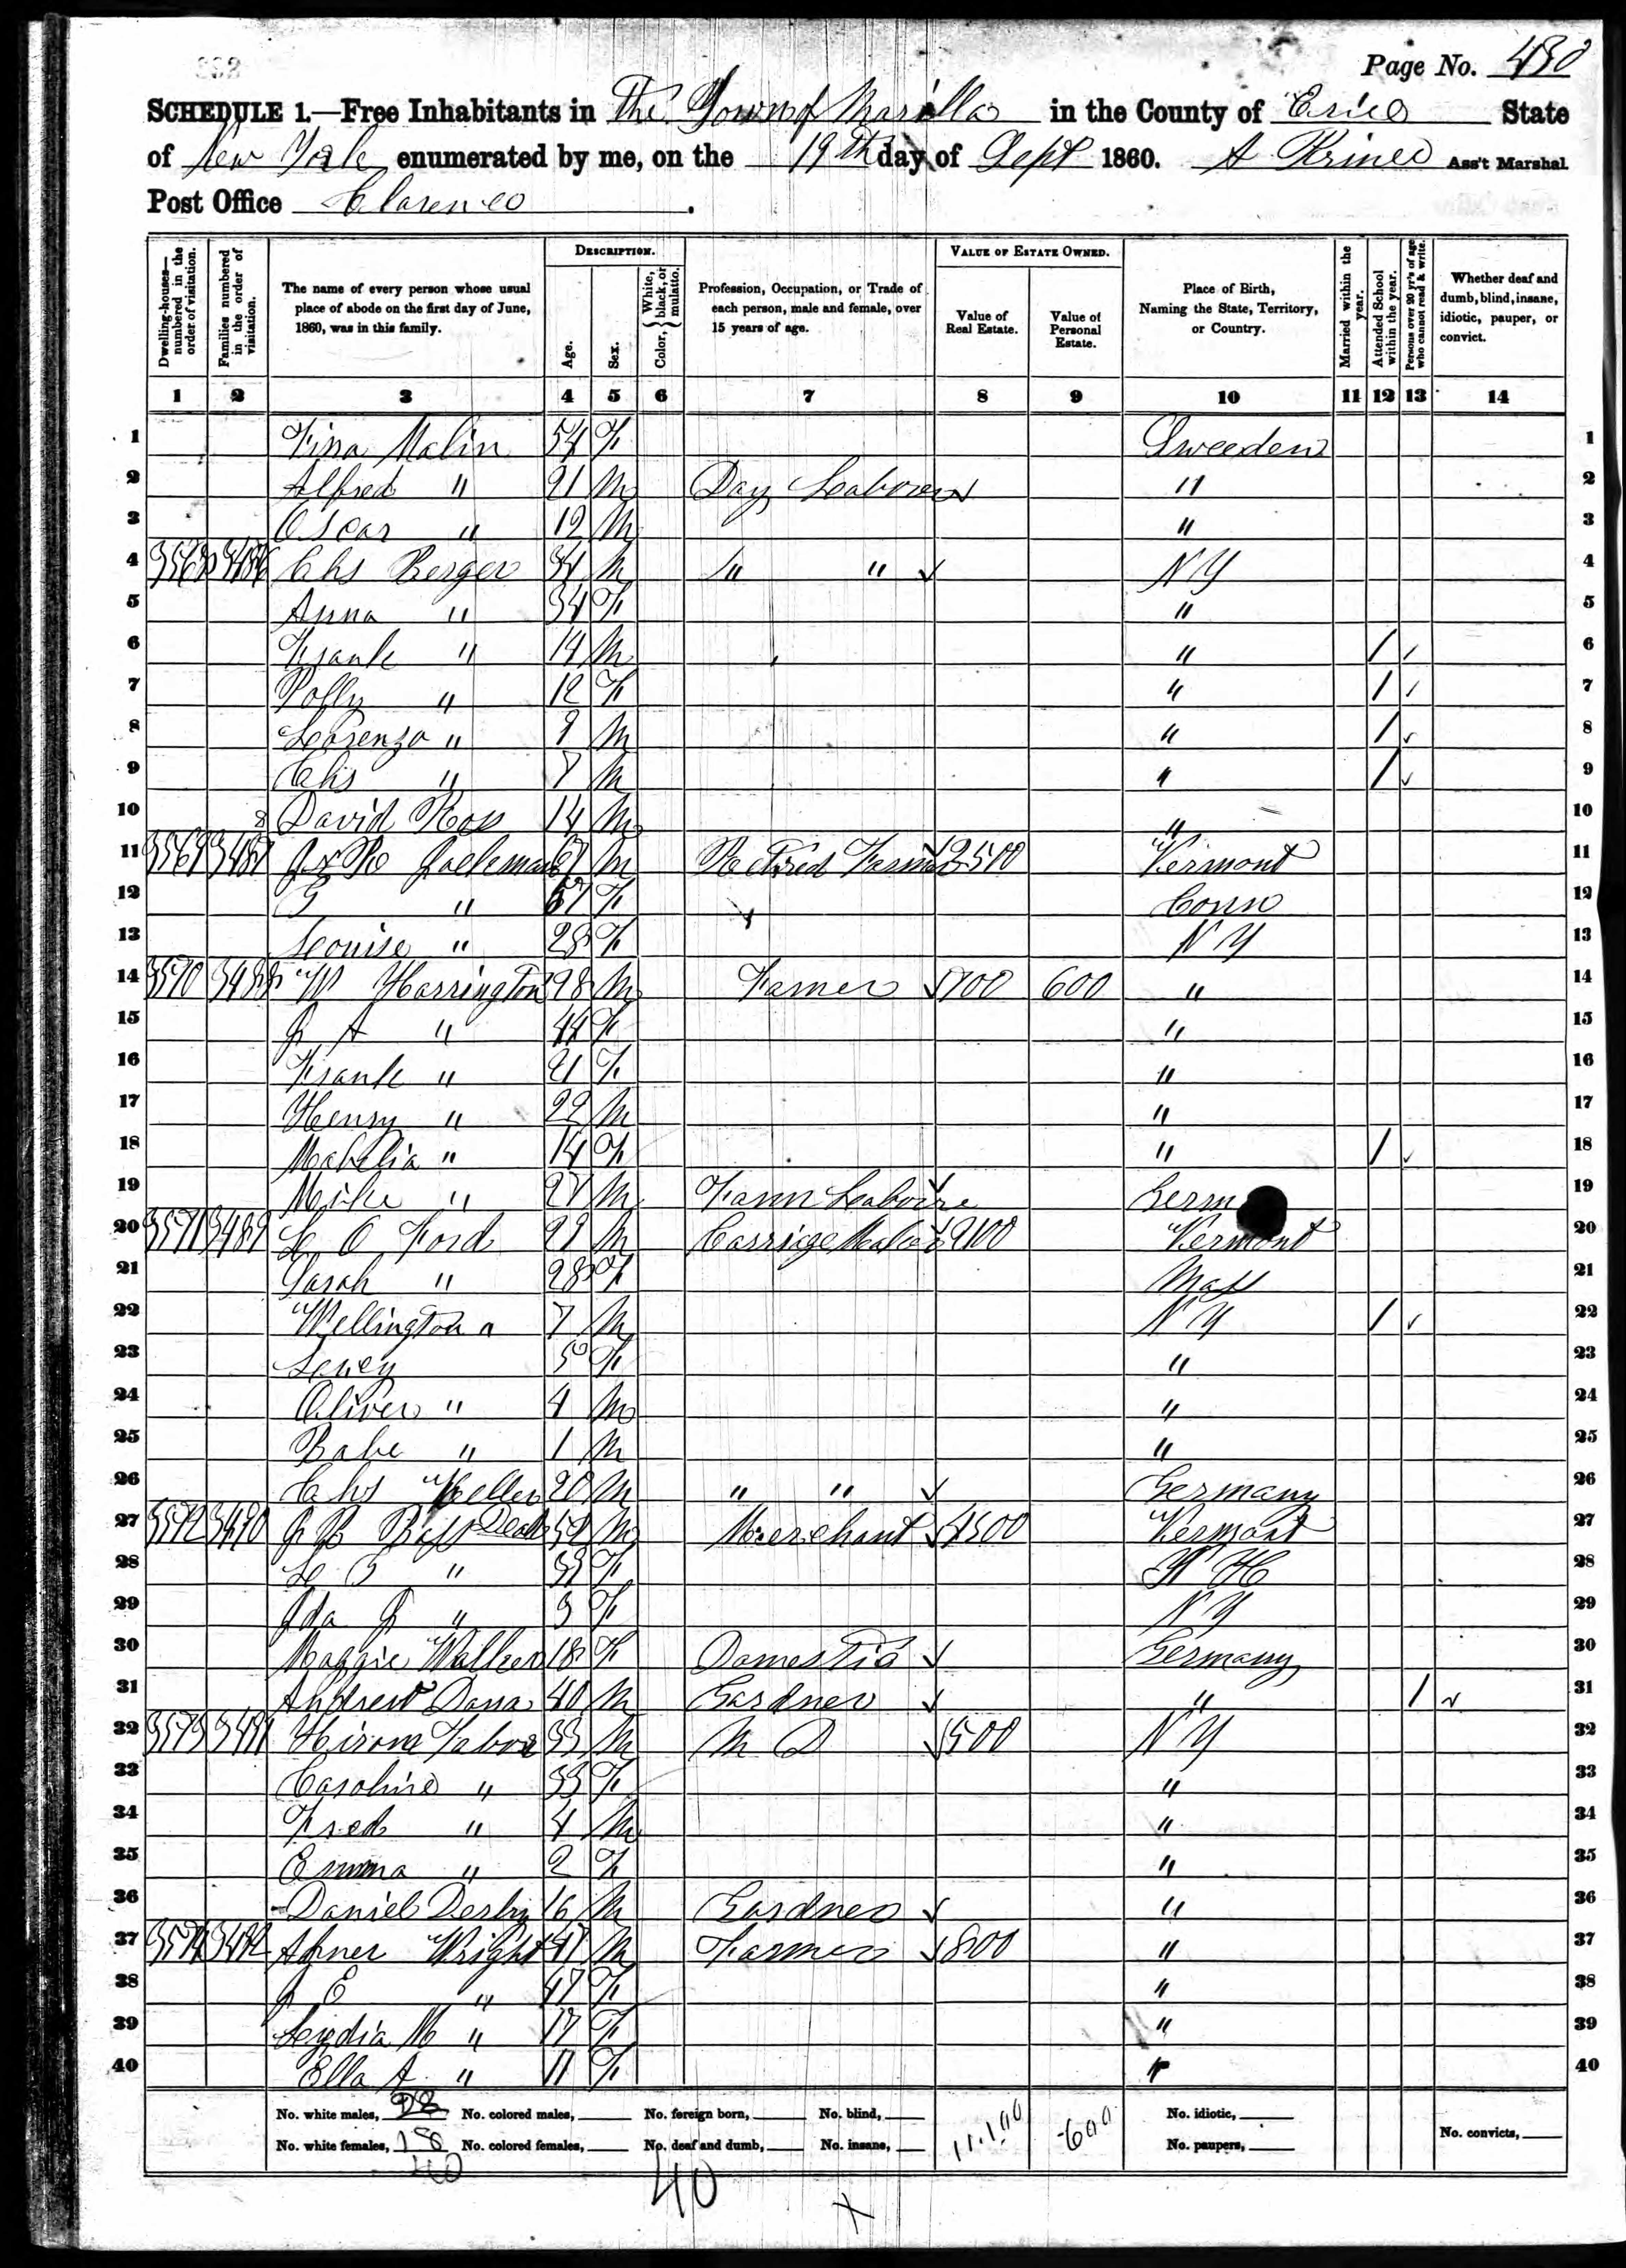 Page No. 430
SCHEDULE 1.—Free Inhabitants in The Town of Marilla in the County of Erie State
of New York enumerated by me, on the 19th day of Sept 1860. A Prince Ass't Marshal
Post Office Clarence.
Dwelling-houses—numbered in the order of visitation. Families numbered in the order of visitation. The name of every person whose usual place of abode on the first day of June, 1860, was in this family. DESCRIPTION. Age. Sex. Color, White, black, or mulatto. Profession, Occupation, or Trade of each person, male and female, over 15 years of age. VALUE OF ESTATE OWNED. Value of Real Estate. Value of Personal Estate. Place of Birth, Naming the State, Territory, or Country. Married within the year. Attended School within the year. Persons over 20 yr's of age who cannot read & write. Whether deaf and dumb, blind, insane, idiotic, pauper, or convict.
1 2 3 4 5 6 7 8 9 10 11 12 13 14
1 Malin 54 F Sweeden 1
2 Alfred " 21 M Day Laborer " 2
3 Oscar " 12 M " 3
4 3568 3486 Chs Berger 34 M " " N Y 4
5 Anna " 34 F " 5
6 Frank " 14 M " / 6
7 Polly " 12 F " / 7
8 Lorenzo " 9 M " / 8
9 Chs " 7 M " / 9
10 David Ross 14 M " 10
11 3569 3487 67 M Retired Farmer 2500 Vermont 11
12 G " 67 F Conn 12
13 Louise " 28 F N Y 13
14 3570 3488 W Harrington 98 M Famer 700 600 " 14
15 J A " 44 F " 15
16 Frank " 21 F " 16
17 Henry " 22 M " 17
18 Mahelia " 14 F " / 18
19 Mike " 27 M Farm Labore Germ 19
20 3571 3489 L O Ford 29 M Carriage Maker 2100 Vermont 20
21 Sarah " 28 F Mass 21
22 Wellington " 7 M N Y / 22
23 5 F " 23
24 Oliver " 4 M " 24
25 Babe " 1 M " 25
26 Chs Keller 20 M " " Germany 26
27 3572 3490 J B Bass 52 M Merchant 4500 Vermont 27
28 L G " 33 F N H 28
29 Ida J " 3 F N Y 29
30 Maggie Walker 18 F Domestic Germany 30
31 Andrew Dana 40 M Gardner " / 31
32 3573 3491 Hiram Tabor 33 M M D 500 N Y 32
33 Caroline " 33 F " 33
34 Fred " 4 M " 34
35 Emma " 2 F " 35
36 Daniel Derby 16 M Gardner " 36
37 3574 3492 Abner Wright 47 M Farmer 800 " 37
38 J E " 47 F " 38
39 Lydia M " 17 F " 39
40 Ella A " 11 F " 40
No. white males, 22 No. colored males, No. foreign born, No. blind, 11,100 600 No. idiotic,
No. white females, 18 No. colored females, No. deaf and dumb, No. insane, No. paupers, No. convicts,
40 40